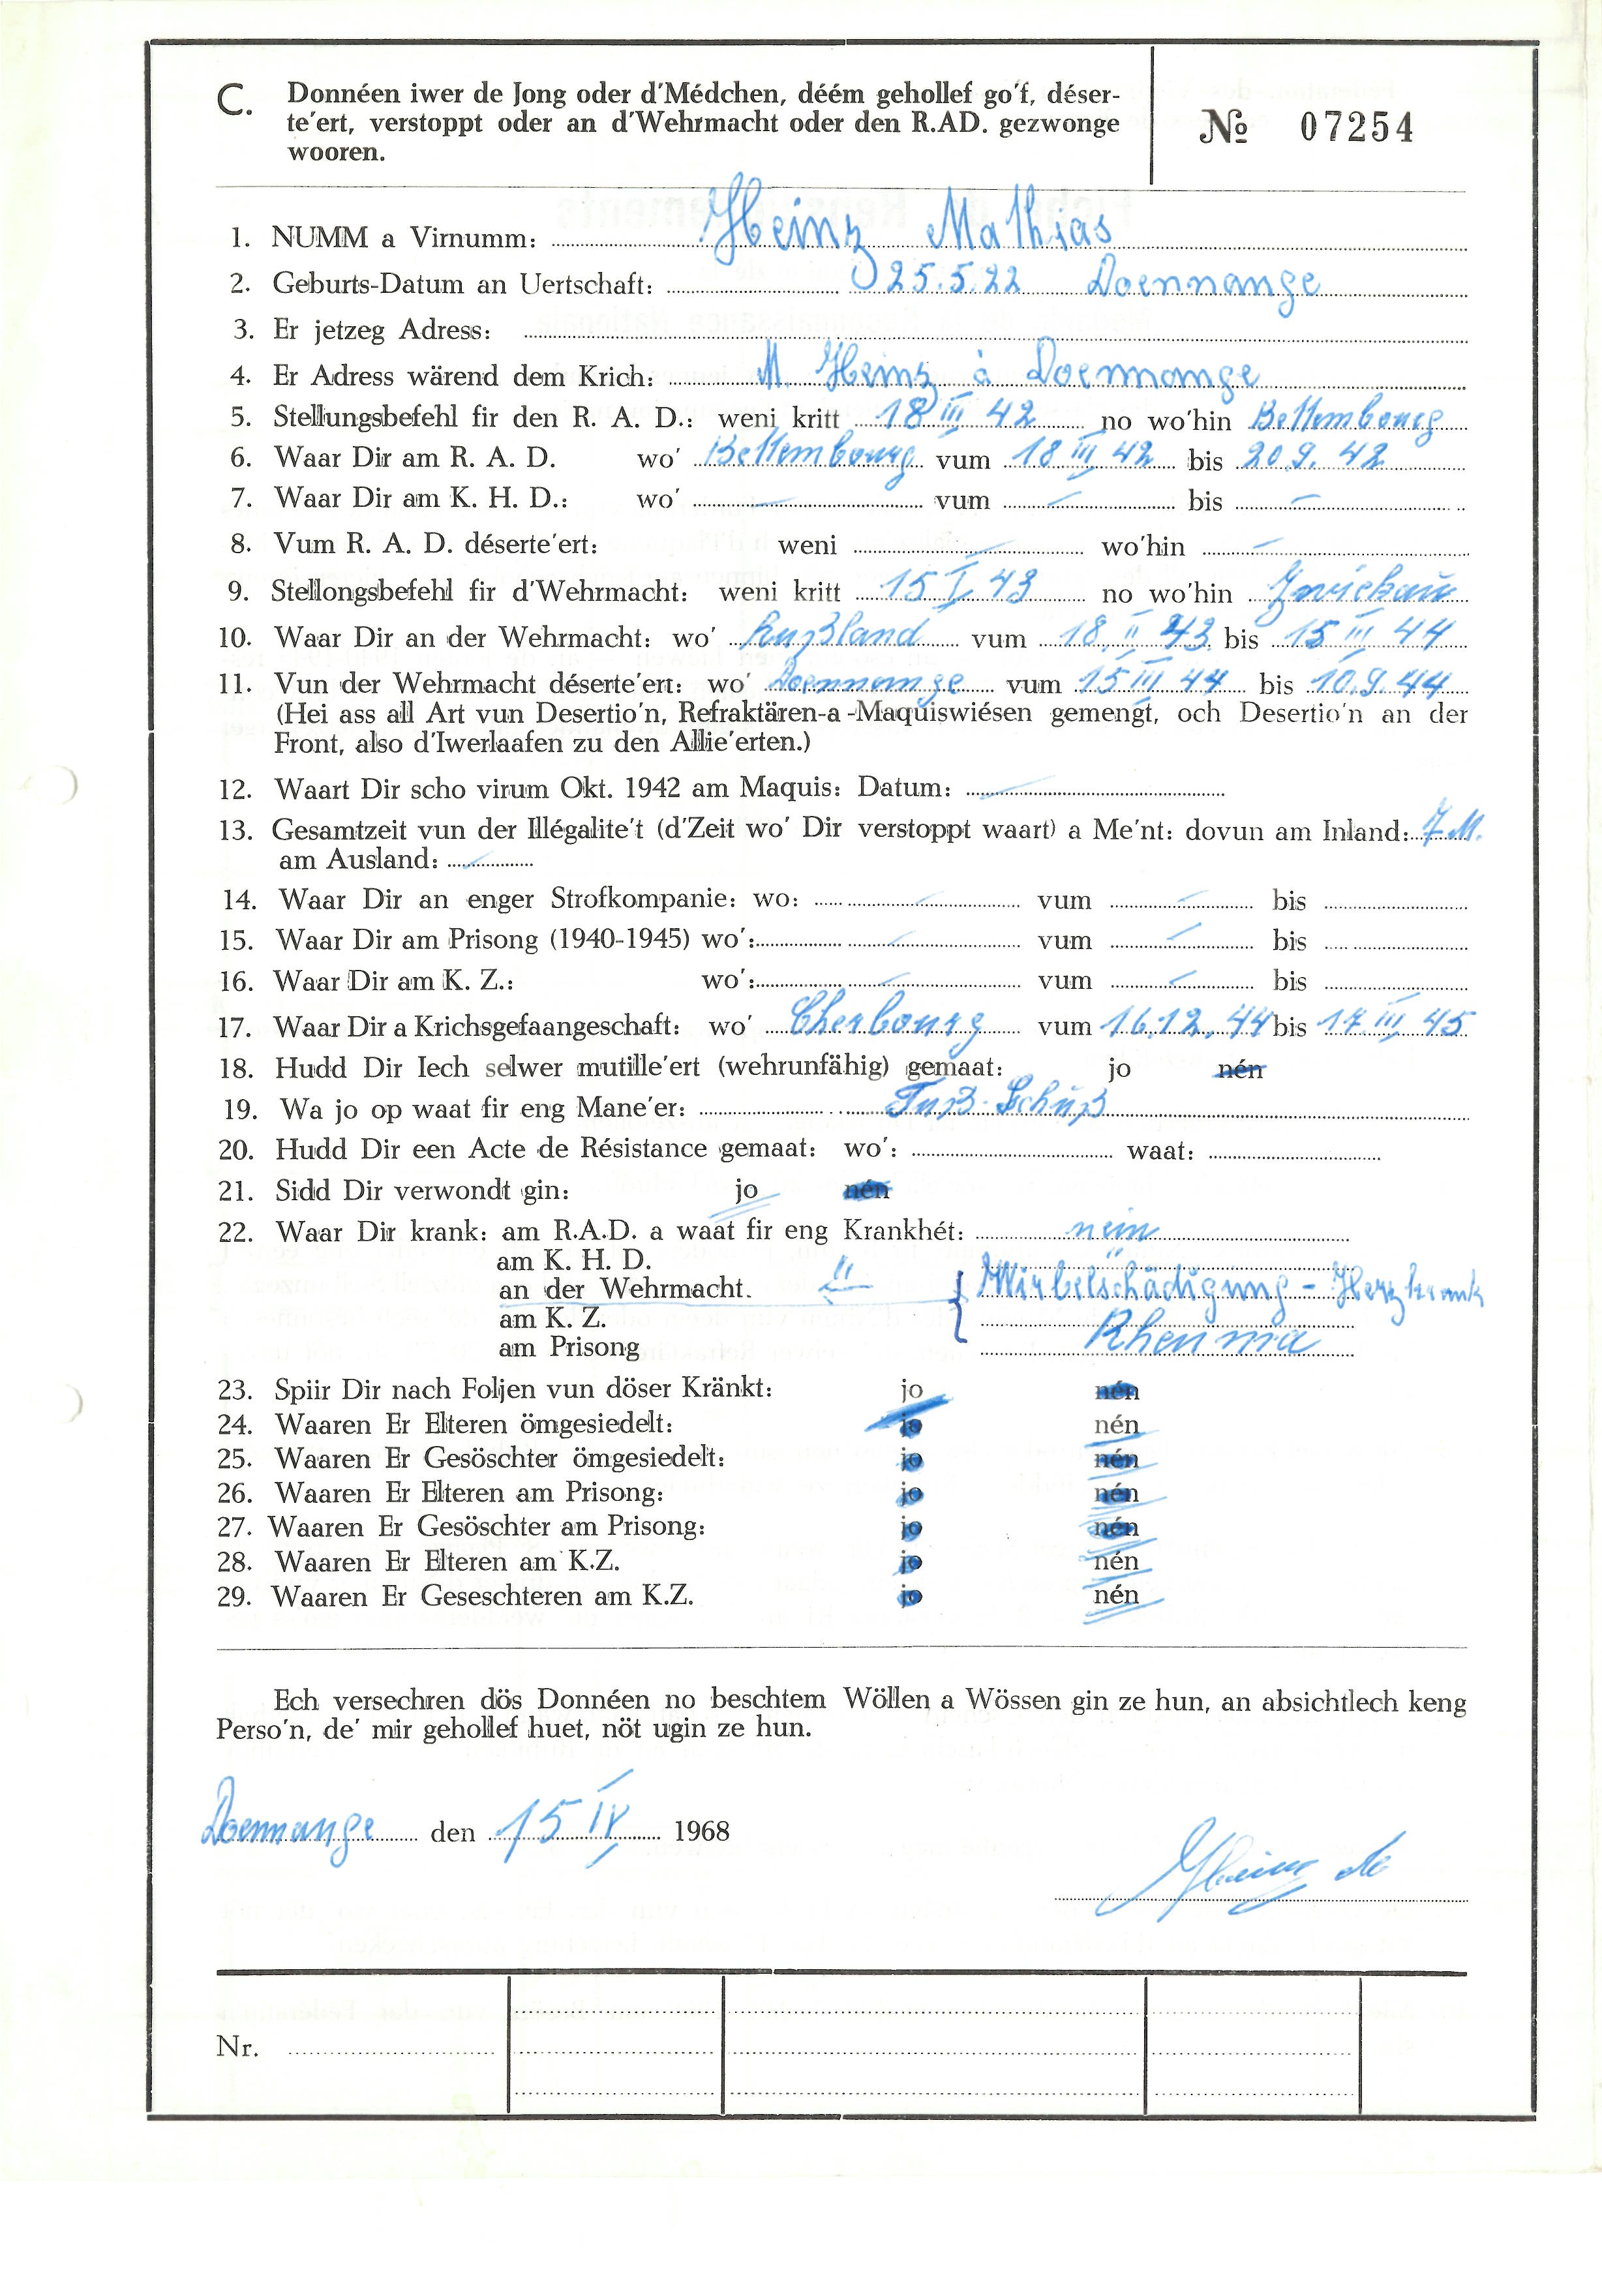 C. Donnéen iwer de Jong oder d'Médchen, déém gehollef go'f, déser-
te'ert, verstoppt oder an d'Wehrmacht oder den R.AD. gezwonge
wooren.
№ 07254
1. NUMM a Virnumm: Heinz Mathias
2. Geburts-Datum an Uertschaft: 25.5.22 Doennange
3. Er jetzeg Adress:
4. Er Adress wärend dem Krich: M. Heinz à Doennange
5. Stellungsbefehl fir den R. A. D.: weni kritt 18 III 42 no wo'hin Bettembourg
6. Waar Dir am R. A. D. wo' Bettembourg vum 18 III 42 bis 20.9.42
7. Waar Dir am K. H. D.: wo' — vum — bis —
8. Vum R. A. D. déserte'ert: weni — wo'hin —
9. Stellongsbefehl fir d'Wehrmacht: weni kritt 15 I 43 no wo'hin Zwickau
10. Waar Dir an der Wehrmacht: wo' Rußland vum 18. II 43 bis 15 III 44
11. Vun der Wehrmacht déserte'ert: wo' Doennange vum 15 III 44 bis 10.9.44
(Hei ass all Art vun Desertio'n, Refraktären-a-Maquiswiésen gemengt, och Desertio'n an der
Front, also d'Iwerlaafen zu den Allie'erten.)
12. Waart Dir scho virum Okt. 1942 am Maquis: Datum: —
13. Gesamtzeit vun der Illégalite't (d'Zeit wo' Dir verstoppt waart) a Me'nt: dovun am Inland: 7 M.
am Ausland: —
14. Waar Dir an enger Strofkompanie: wo: — vum — bis
15. Waar Dir am Prisong (1940-1945) wo': — vum — bis
16. Waar Dir am K. Z.: wo': — vum — bis
17. Waar Dir a Krichsgefaangeschaft: wo' Cherbourg vum 16.12.44 bis 17 III 45
18. Hudd Dir Iech selwer mutille'ert (wehrunfähig) gemaat: jo nén
19. Wa jo op waat fir eng Mane'er: Fuß-Schuß
20. Hudd Dir een Acte de Résistance gemaat: wo': waat:
21. Sidd Dir verwondt gin: jo nén
22. Waar Dir krank: am R.A.D. a waat fir eng Krankhét: nein
am K. H. D. "
an der Wehrmacht. " Wirbelschädigung - Herzkrank
am K. Z.
am Prisong Rheuma
23. Spiir Dir nach Foljen vun döser Kränkt: jo nén
24. Waaren Er Elteren ömgesiedelt: jo nén
25. Waaren Er Gesöschter ömgesiedelt: jo nén
26. Waaren Er Elteren am Prisong: jo nén
27. Waaren Er Gesöschter am Prisong: jo nén
28. Waaren Er Elteren am K.Z. jo nén
29. Waaren Er Geseschteren am K.Z. jo nén
Ech versechren dös Donnéen no beschtem Wöllen a Wössen gin ze hun, an absichtlech keng
Perso'n, de' mir gehollef huet, nöt ugin ze hun.
Doennange den 15 IV 1968
Heinz
Nr.